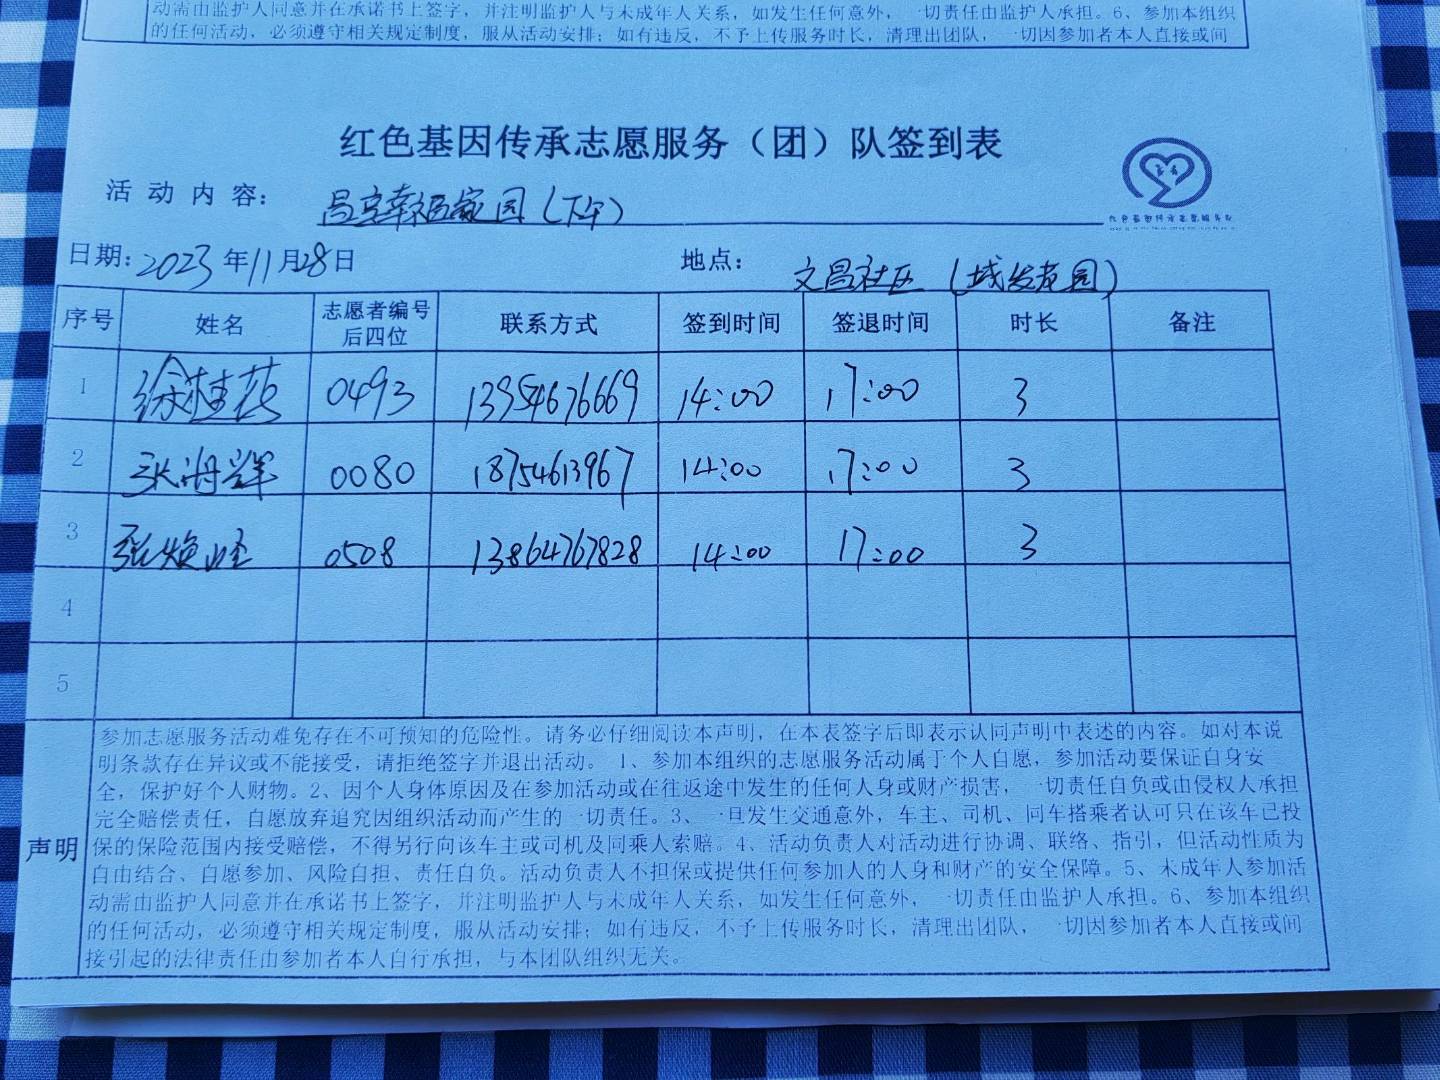 动需由监护人同意并在承诺书上签字，并注明监护人与未成年人关系，如发生任何意外，一切责任由监护人承担。6、参加本组织
的任何活动，必须遵守相关规定制度，服从活动安排；如有违反，不予上传服务时长，清理出团队，一切因参加者本人直接或间
红色基因传承志愿服务（团）队签到表
活动内容： 幸福家园（下午）
日期：2023年11月28日 地点： 文昌社区（城发花园）
序号 姓名 志愿者编号后四位 联系方式 签到时间 签退时间 时长 备注
1 徐桂花 0493 13954676669 14:00 17:00 3
2 张海辉 0080 18754613967 14:00 17:00 3
3 张焕 0508 13864767828 14:00 17:00 3
4
5
声明
参加志愿服务活动难免存在不可预知的危险性。请务必仔细阅读本声明，在本表签字后即表示认同声明中表述的内容。如对本说
明条款存在异议或不能接受，请拒绝签字并退出活动。 1、参加本组织的志愿服务活动属于个人自愿，参加活动要保证自身安
全，保护好个人财物。2、因个人身体原因及在参加活动或在往返途中发生的任何人身或财产损害，一切责任自负或由侵权人承担
完全赔偿责任，自愿放弃追究因组织活动而产生的一切责任。3、一旦发生交通意外，车主、司机、同车搭乘者认可只在该车已投
保的保险范围内接受赔偿，不得另行向该车主或司机及同乘人索赔。4、活动负责人对活动进行协调、联络、指引，但活动性质为
自由结合、自愿参加、风险自担、责任自负。活动负责人不担保或提供任何参加人的人身和财产的安全保障。5、未成年人参加活
动需由监护人同意并在承诺书上签字，并注明监护人与未成年人关系，如发生任何意外，一切责任由监护人承担。6、参加本组织
的任何活动，必须遵守相关规定制度，服从活动安排；如有违反，不予上传服务时长，清理出团队，一切因参加者本人直接或间
接引起的法律责任由参加者本人自行承担，与本团队组织无关。